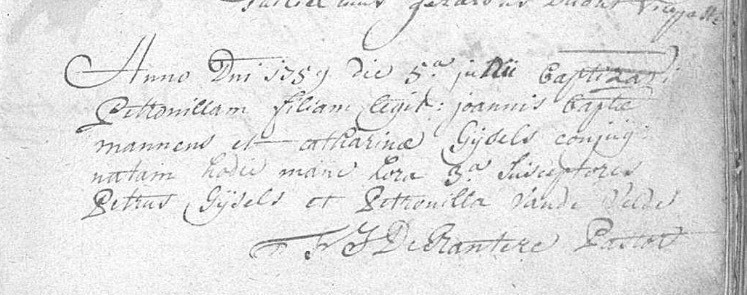 gerardus
Anno Dni 1759 die 5.a julii baptizavi
Petronillam filiam legit: joannis Baptæ
mannens et catharinæ Gijsels conjug
natam hodie mane hora 3.a Susceptores
Petrus Gijsels et Petronilla Vande Velde
F J De Prantere Pastor